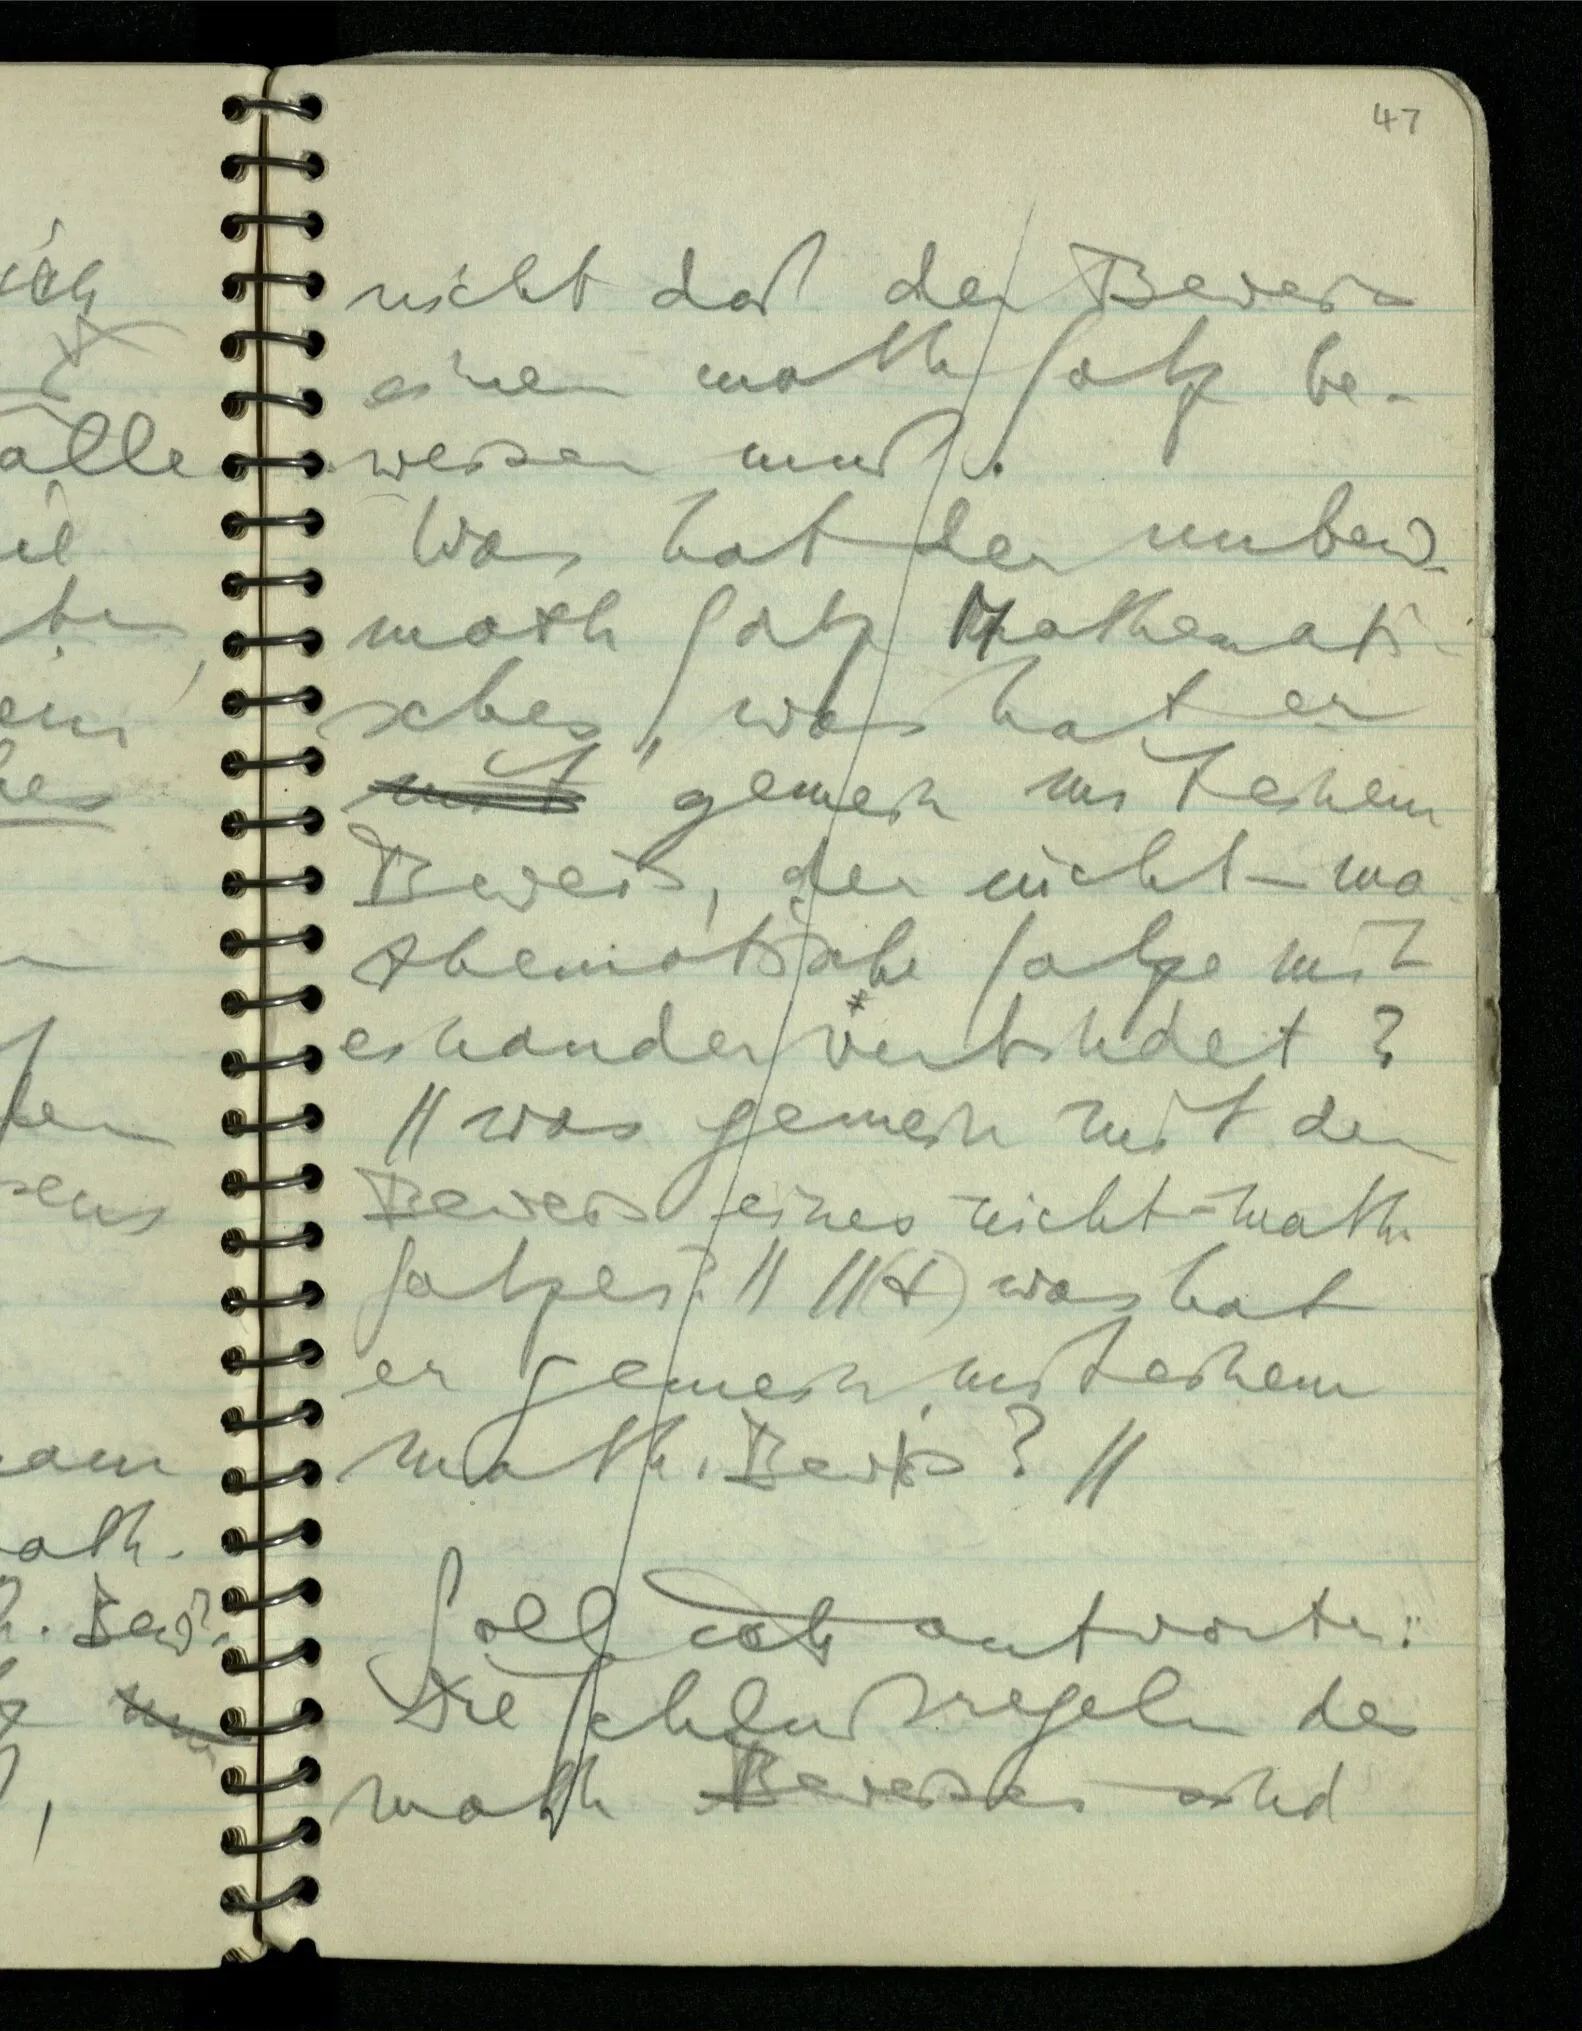 47
nicht daß der Beweis
einen math Satz be-
weisen muß.
Was hat der unbew.
math Satz Mathemati-
sches, was hat er
mit gemein mit einem
Beweis, der nicht-ma
thematische Satze mit
einander verbindet?
// was gemein mit dem
Beweis eines nicht-math
Satzes? // //(+) was hat
er gemein mit einem
math. Beweis? //
Soll ich antworten:
Die Schlußregeln des
math Beweises sind
ich
alle
ein
hes
math.
h. Bew.